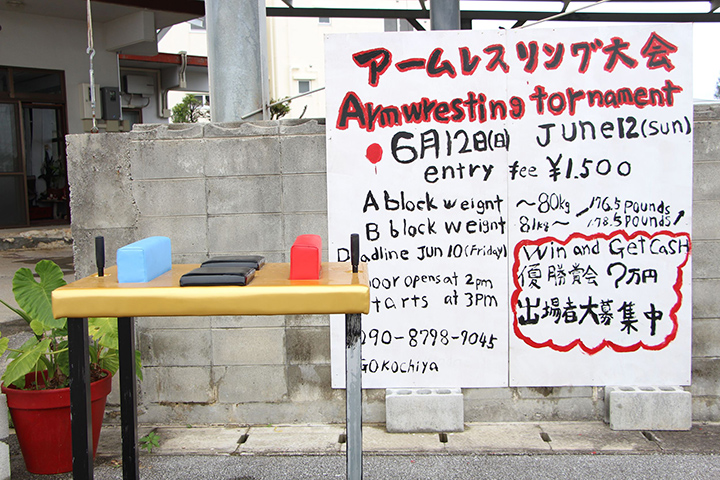 アームレスリング大会
Armwresting tornament
6月12日(日) June 12 (Sun)
entry fee ¥1.500
A block weignt ~80kg 176.5 pounds
B block weignt 81kg~ 178.5 pounds
Deadline Jun 10 (Friday)
Door opens at 2pm
Starts at 3pm
090-8798-7045
GOKOCHIYA
Win and Get CaSH
優勝賞金 ?万円
出場者大募集中